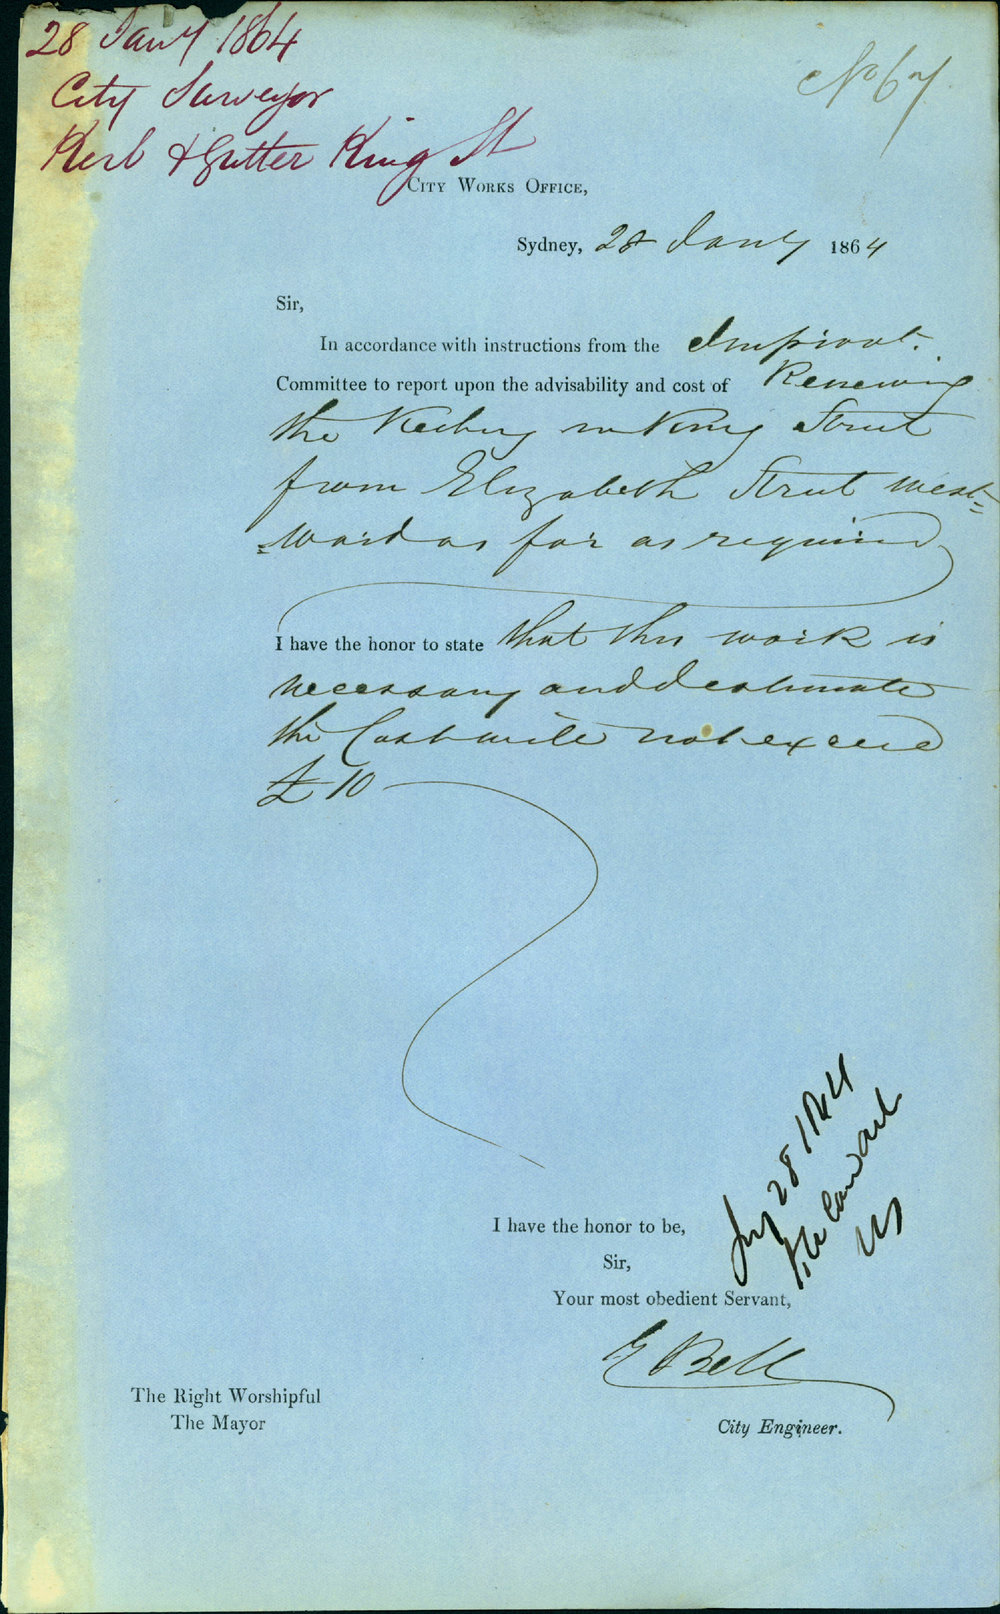 28 Jany 1864
City Surveyor
Kerb & Gutter King St
No 67
City Works Office,
Sydney, 28 Jany 1864
Sir,
In accordance with instructions from the Improvt.
Committee to report upon the advisability and cost of Renewing
the Kerbing in King Street
from Elizabeth Street west=
=ward as far as required
I have the honor to state that this work is
necessary and I estimate
the Cost will not exceed
£10
28 1864
I have the honor to be,
Sir,
Your most obedient Servant,
E Bell
City Engineer.
The Right Worshipful
The Mayor